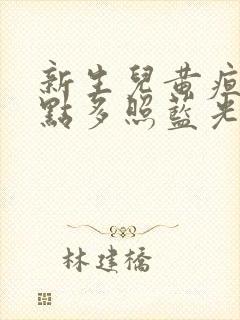 新生兒黃疸
點多照藍光
林建橋